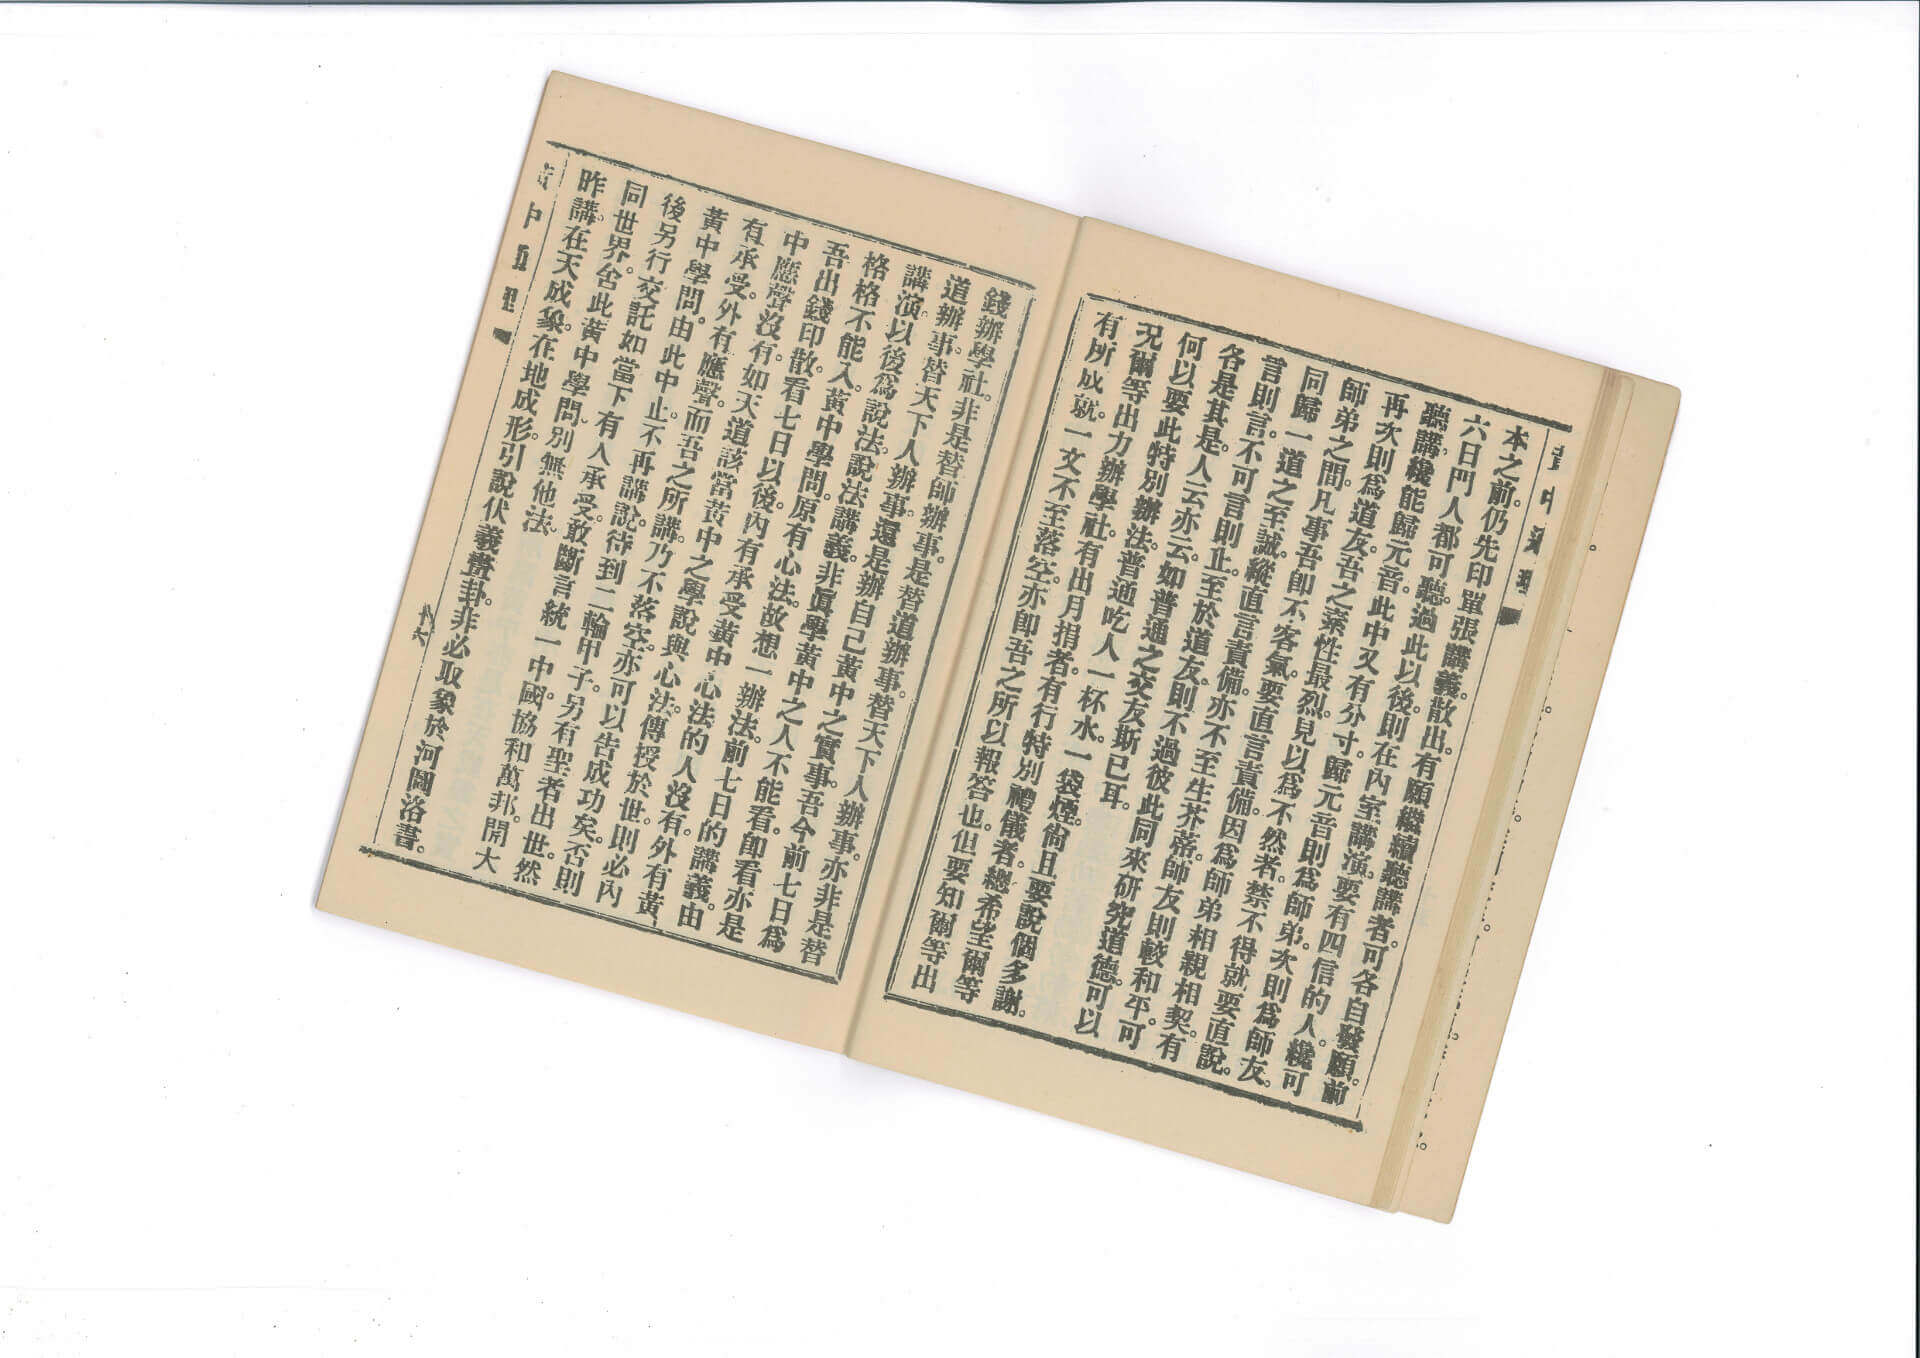 黃中通理
本之前。仍先印單張講義。散出。有願繼續聽講者。可各自發願。前
六日門人都可聽。過此以後。則在內室講演。要有四信的人。纔可
聽講。纔能歸元音。此中又有分寸。歸元音則為師弟。次則為師友。
再次則為道友。吾之稟性最烈。見以為不然者。禁不得就要直說。
師弟之間。凡事吾卽不客氣。要直言責備。因為師弟相親相契。有
同歸一道之至誠。縱直言責備。亦不至生芥蒂。師友則較和平。可
言則言。不可言則止。至於道友。則不過彼此同來研究道德。可以
各是其是。人云亦云。如普通之交友斯已耳。
何以要此特別辦法。普通吃人一杯水。一袋煙。尙且要說個多謝。
況爾等出力辦學社。有出月捐者。有行特別禮儀者。總希望爾等
有所成就。一文不至落空。亦卽吾之所以報答也。但要知爾等出
錢辦學社。非是替師辦事。是替道辦事。替天下人辦事。亦非是替
道辦事。替天下人辦事。還是辦自己黃中之實事。吾今前七日為
講演。以後為說法。說法講義。非眞學黃中之人不能看。卽看亦是
格格不能入。黃中學問。原有心法。故想一辦法。前七日的講義。由
吾出錢印散。看七日以後。內有承受黃中心法的人沒有。外有黃
中應聲沒有。如天道該當黃中之學說與心法。傳授於世。則必內
有承受。外有應聲。而吾之所講。乃不落空。亦可以告成功矣。否則
黃中學問。由此中止。不再講說。待到二輪甲子。另有聖者出世。然
後另行交託。如當下有人承受。敢斷言統一中國。協和萬邦。開大
同世界。舍此黃中學問。別無他法。
昨講。在天成象。在地成形。引說伏羲畫卦。非必取象於河圖洛書。
黃中通理
十六